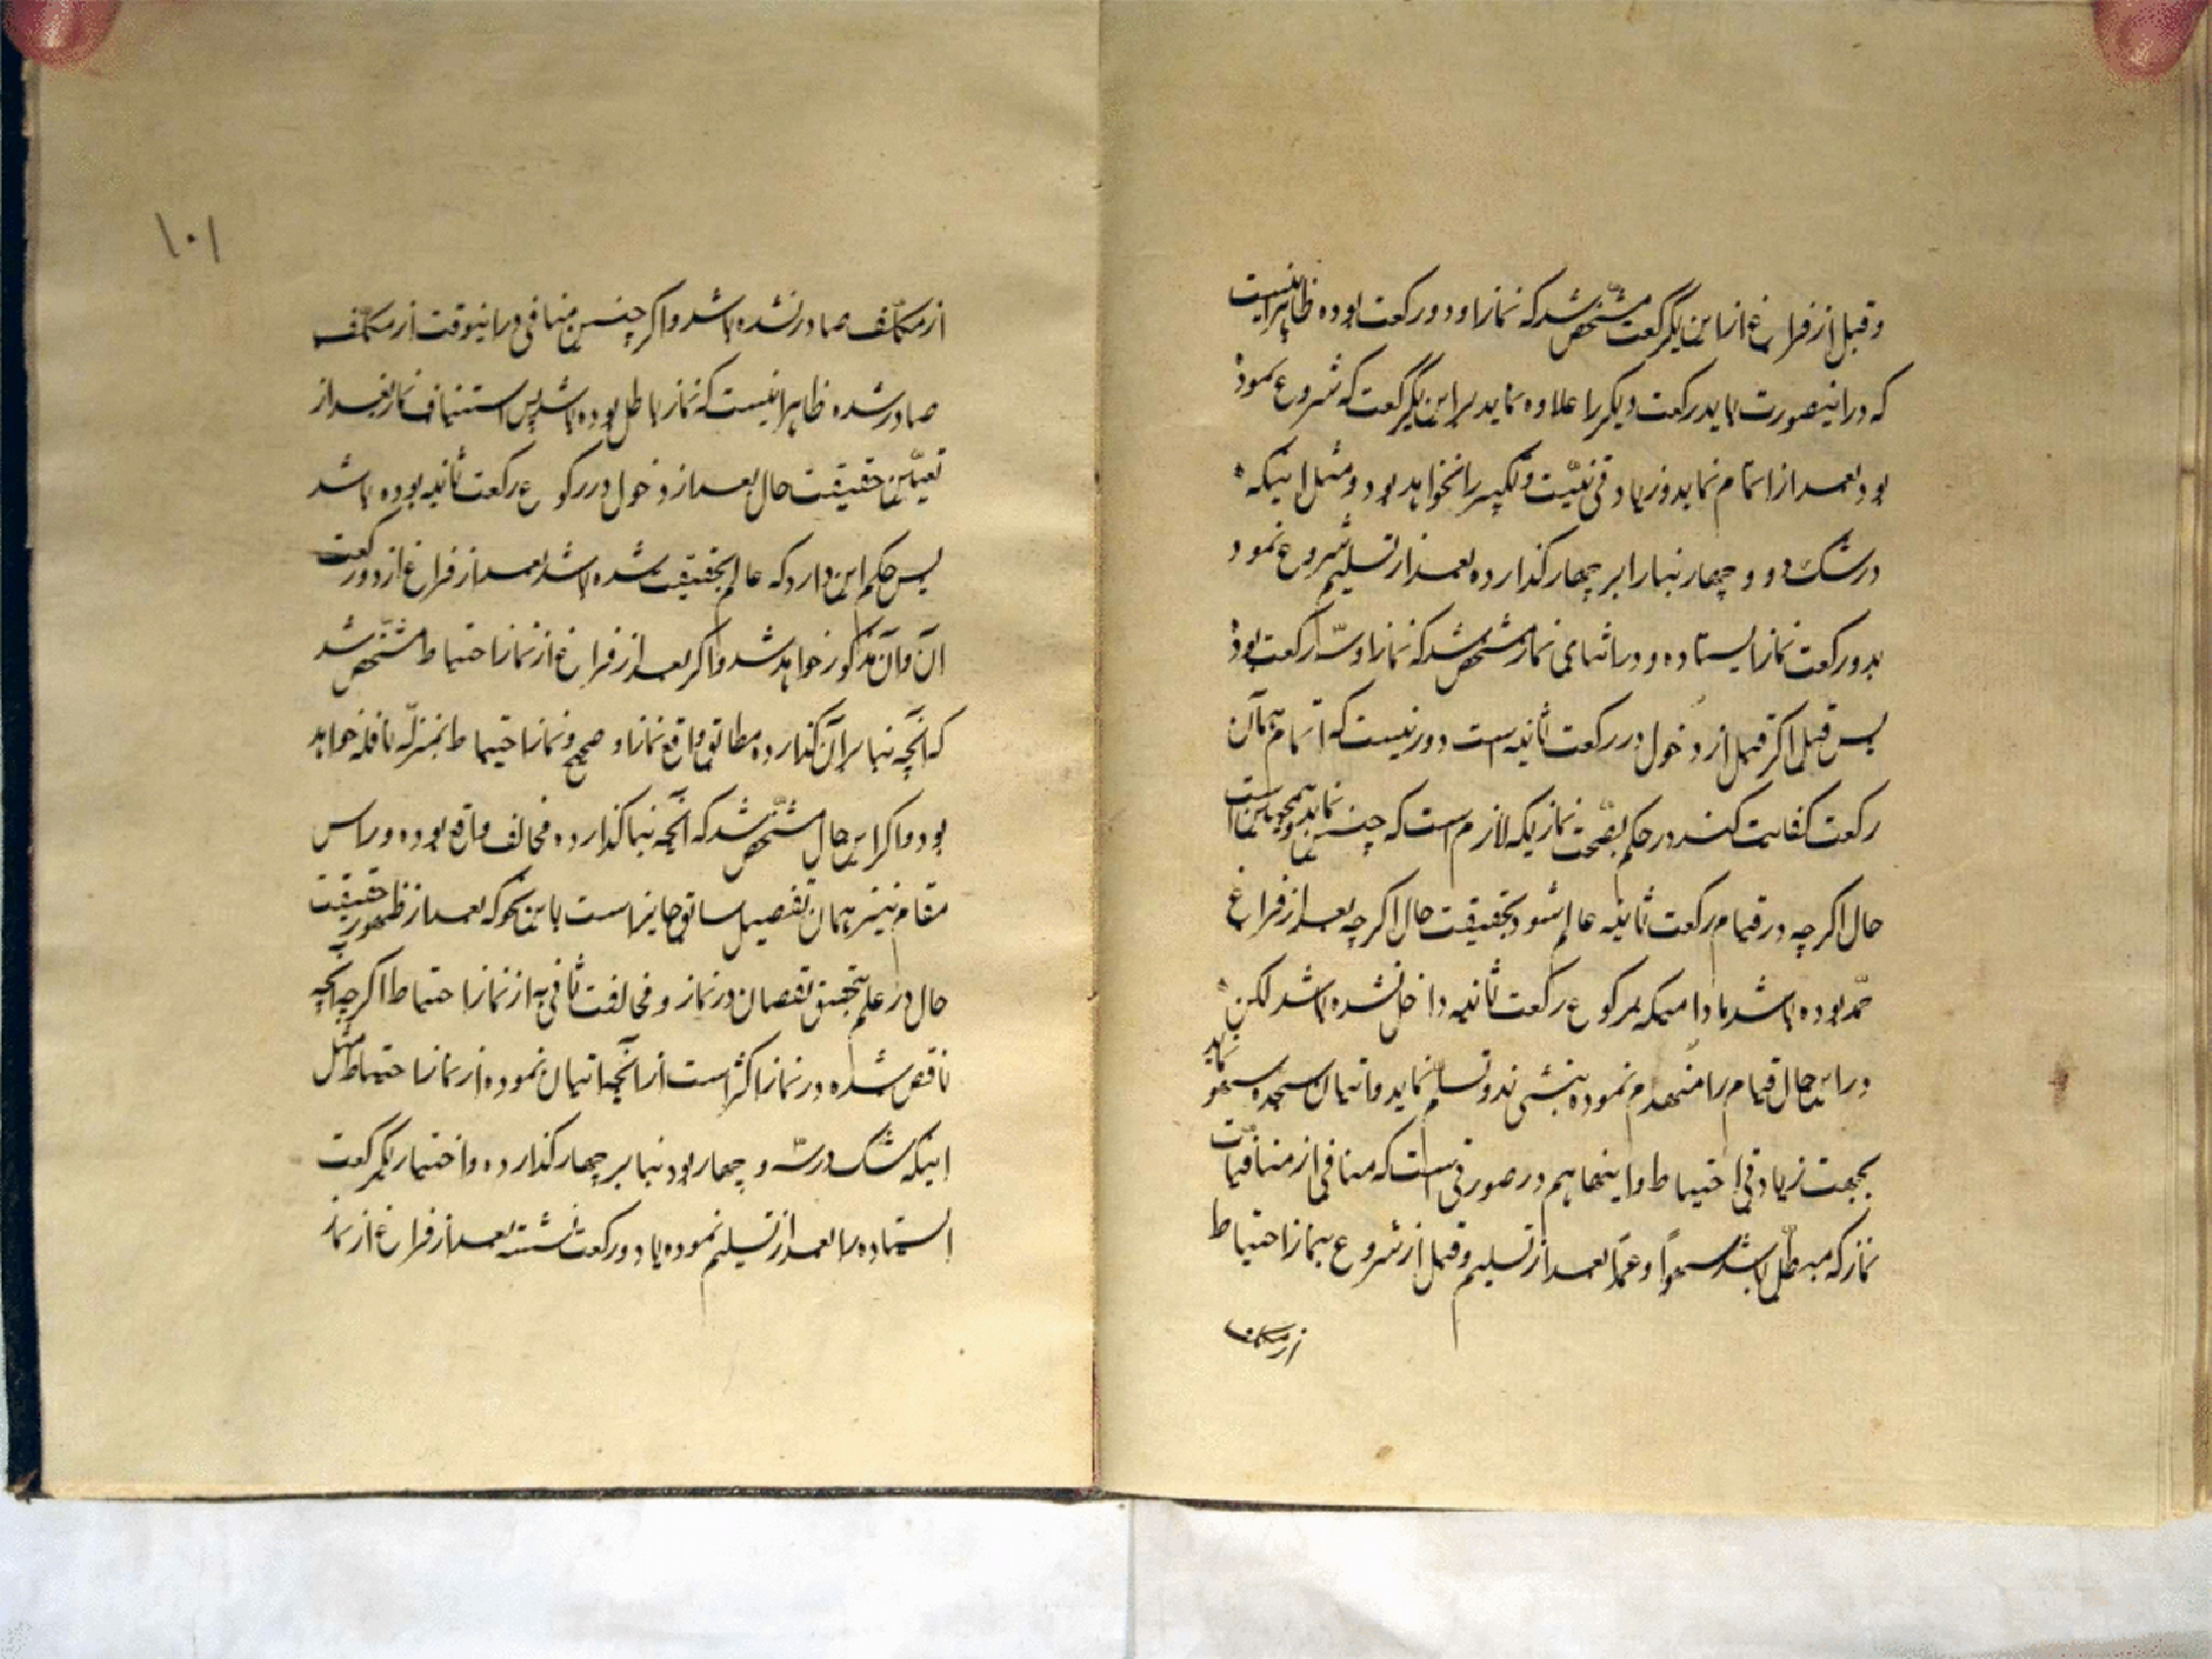 و قبل از فراغ از این یکرکعت مشخص شد که نماز او دو رکعت بوده ظاهر اینست
که در اینصورت باید رکعت دیکر را علاوه نماید بر این یکرکعت که شروع نموده
بود بعد از اتمام نماید و زیادتی نیّت و تکبیر را نخواهد بود و مثل اینکه
در شک دو و چهار بنا را بر چهار کذارده بعد از تسلیم شروع نمود
بدو رکعت نماز ایستاده و در اثنای نماز مشخص شد که نماز او سه رکعت بوده
پس قبل اکر قبل از دخول در رکعت ثانیه است دور نیست که اتمام همان
رکعت کفایت کند در حکم بصحت نماز بلکه لازم است که چنین نماید و همچنین است
حال اکر چه در قیام رکعت ثانیه عالم شود بحقیقت حال اکر چه بعد از فراغ
حمد بوده باشد مادامیکه برکوع رکعت ثانیه داخل نشده باشد لکن
در این حال قیام را منهدم نموده بنشیند و تسلیم نماید و اتیان سجده سهو نماید
بجهت زیادتی احتیاط و اینها هم در صورتی است که منافی از منافیات
نماز که مبطل باشد سهواً و عمداً بعد از تسلیم و قبل از شروع بنماز احتیاط
از مکلف
۱۰۱
از مکلّف صادر نشده باشد و اکر چنین منافی در اینوقت از مکلّف
صادر شده ظاهر اینست که نماز باطل بوده باشد پس استیناف نماز بعد از
تعیین حقیقت حال بعد از دخول در رکوع رکعت ثانیه بوده باشد
پس حکم این دارد که عالم بحقیقت شده باشد بعد از فراغ از دو رکعت
آن و آن مذکور خواهد شد و اکر بعد از فراغ از نماز احتیاط مشخّص شد
که آنچه بنا بر آن کذارده مطابق واقع نماز او صحیح و نماز احتیاط بمنزله نافله خواهد
بود و اکر این حال مشخّص شد که آنچه بنا کذارده مخالف واقع بوده در این
مقام نیز همان تفصیل سابق جایز است باین نحو که بعد از ظهور حقیقت
حال در علم بتحقیق نقصان در نماز و مخالفت ثانی به از نماز احتیاط اکر چه آنچه
ناقص شده در نماز اکثر است از آنچه اتیان نموده از نماز احتیاط مثل
اینکه شک در سه و چهار بود بنا بر چهار کذارده و اختیار یکرکعت
ایستاده را بعد از تسلیم نموده یا دو رکعت نشسته بعد از فراغ از نماز